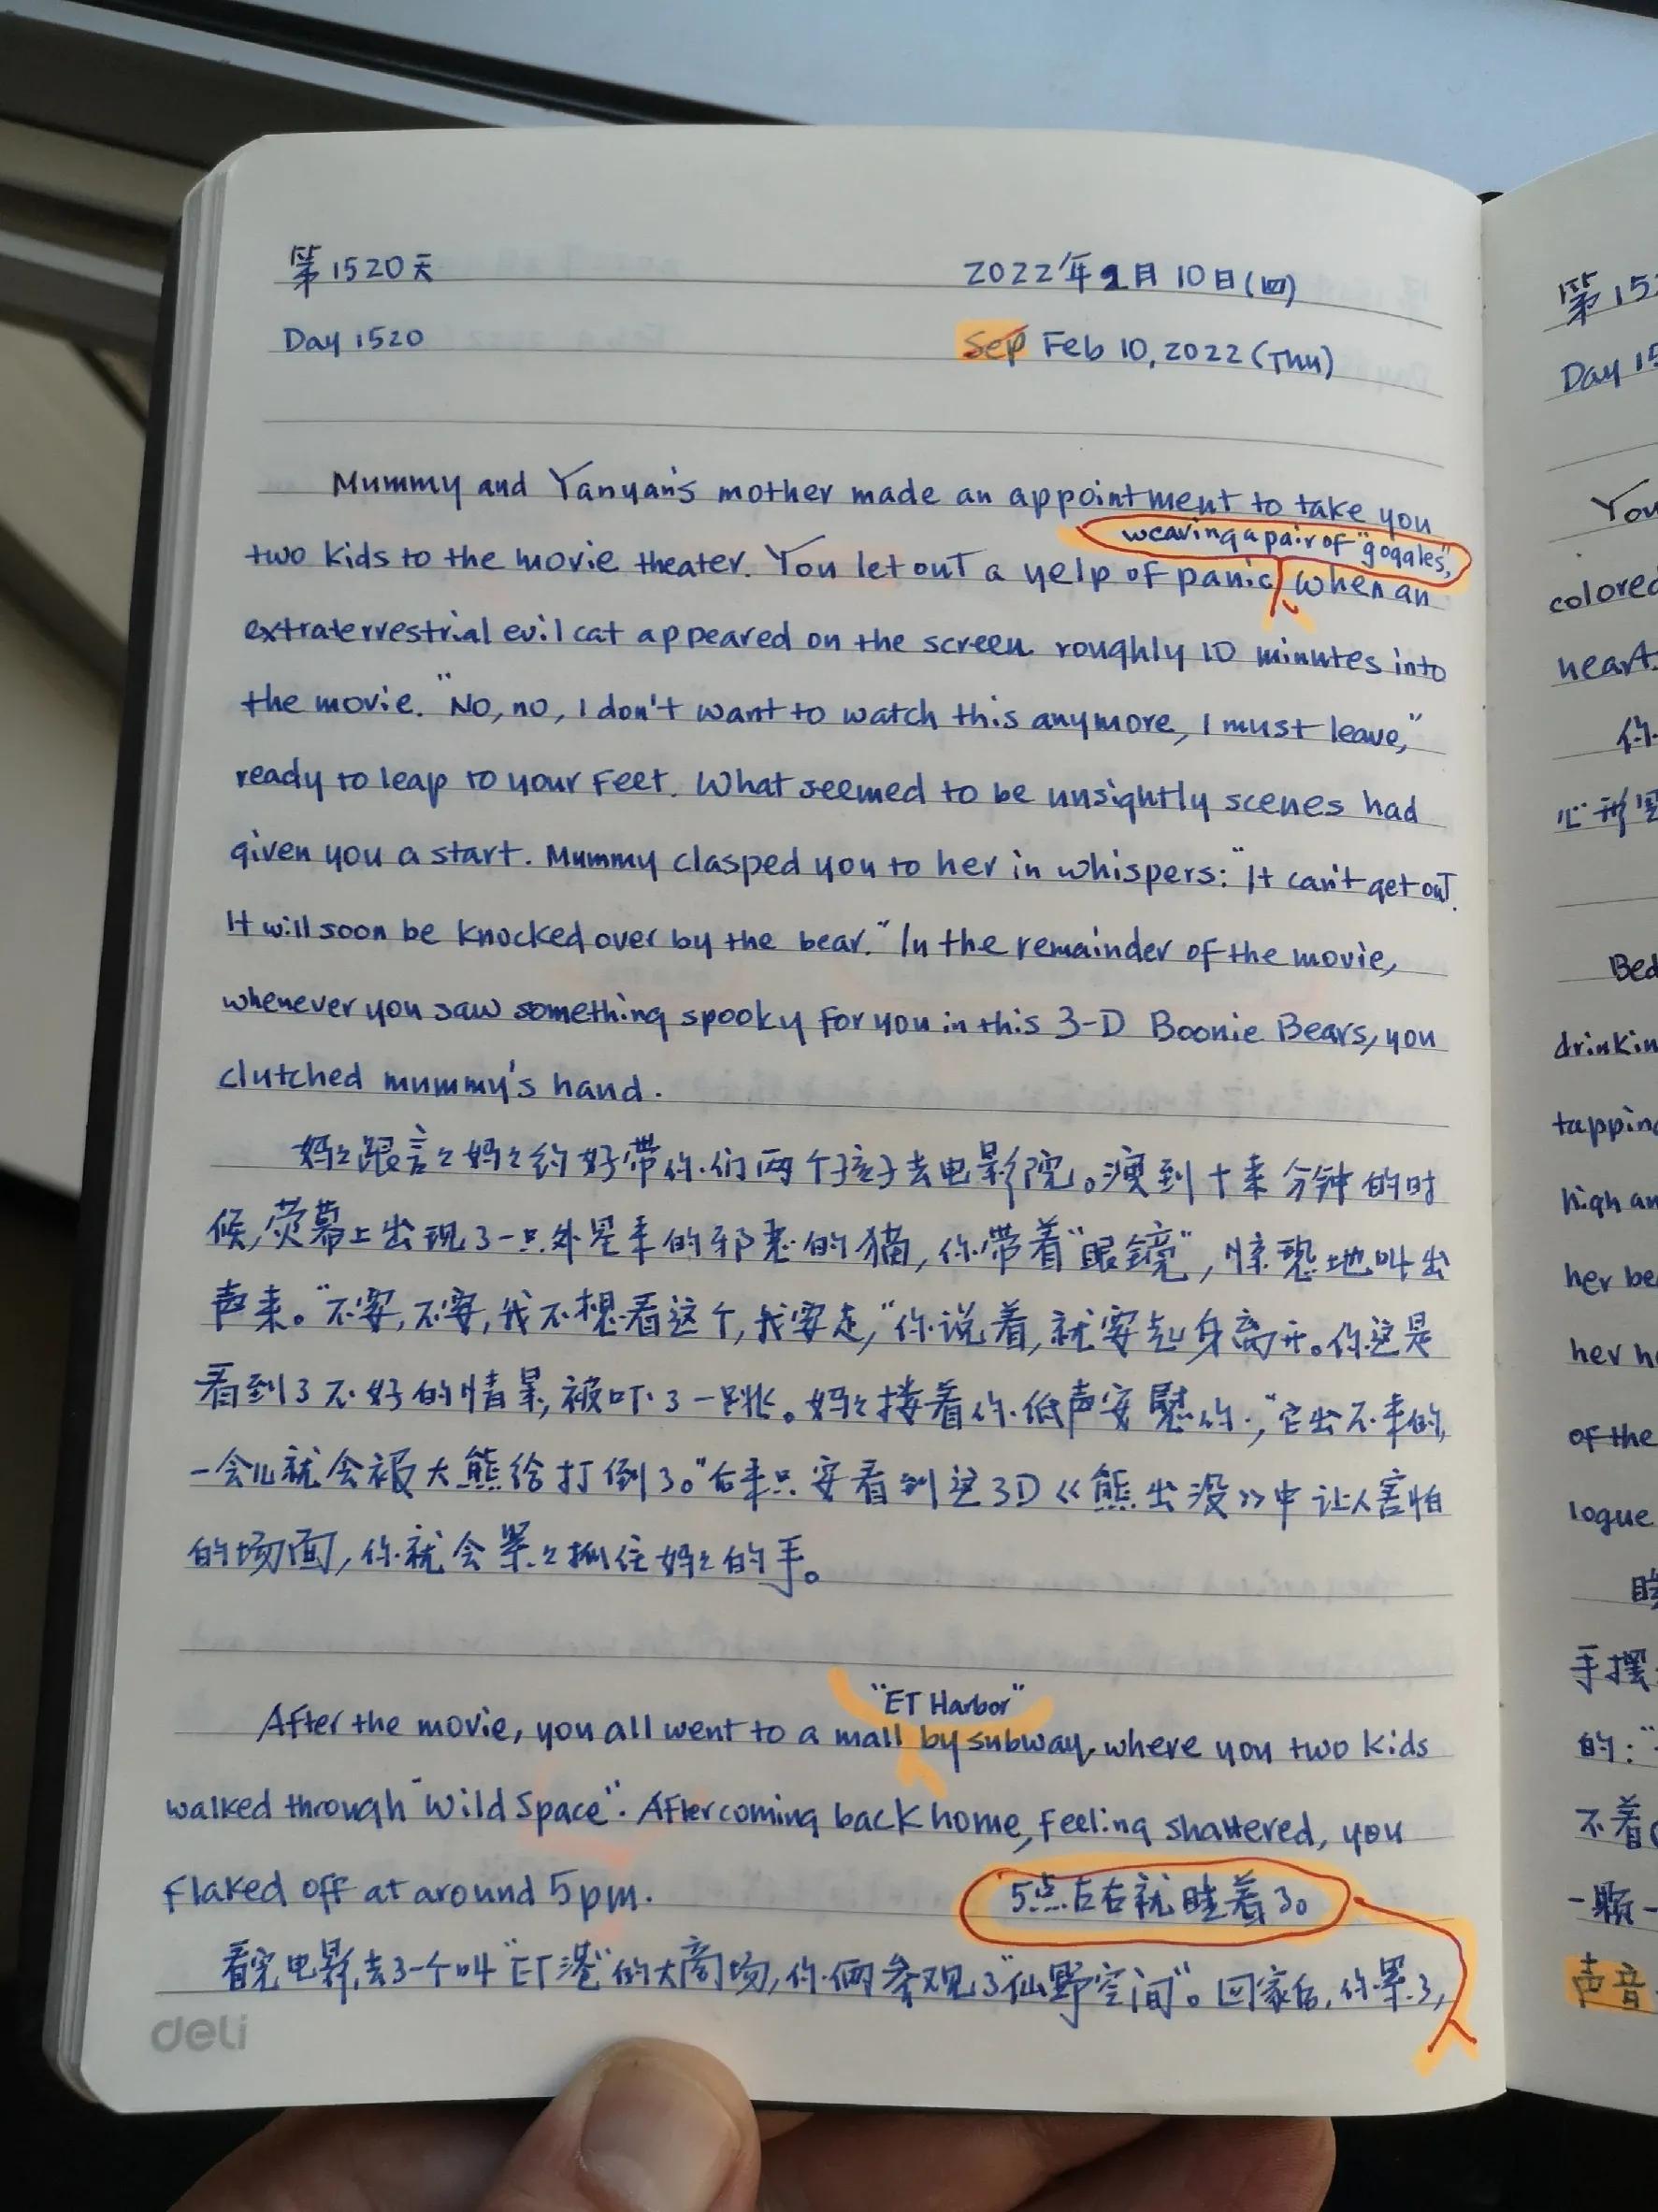 第1520天 2022年2月10日(四)
Day 1520 Sep Feb 10, 2022 (Thu)
Mummy and Yanyan's mother made an appointment to take you
wearing a pair of "goggles",
two kids to the movie theater. You let out a yelp of panic, when an
extraterrestrial evil cat appeared on the screen roughly 10 minutes into
the movie. "No, no, I don't want to watch this anymore, I must leave,"
ready to leap to your feet. What seemed to be unsightly scenes had
given you a start. Mummy clasped you to her in whispers: "It can't get out.
It will soon be knocked over by the bear." In the remainder of the movie,
whenever you saw something spooky for you in this 3-D Boonie Bears, you
clutched mummy's hand.
妈々跟言々妈々约好带你们两个孩子去电影院。演到十来分钟的时
候,荧幕上出现了一只外星来的邪恶的猫,你带着“眼镜”,惊恐地叫出
声来。“不要,不要,我不想看这个,我要走,”你说着,就要起身离开。你这是
看到了不好的情景,被吓了一跳。妈々搂着你低声安慰你:“它出不来的,
一会儿就会被大熊给打倒了。”后来只要看到这3D《熊出没》中让人害怕
的场面,你就会紧々抓住妈々的手。
"ET Harbor"
After the movie, you all went to a mall by subway, where you two kids
walked through "Wild Space". After coming back home, feeling shattered, you
flaked off at around 5pm.
5点左右就睡着了。
看完电影,去了一个叫“ET港”的大商场,你俩参观了“仙野空间”。回家后,你累了,
deli
第15
Day 15
You
colored
heart.
你
心形
Bed
drinkin
tapping
high an
her be
her h
of the
logue
手摆
的:“
不着
一颗
声音